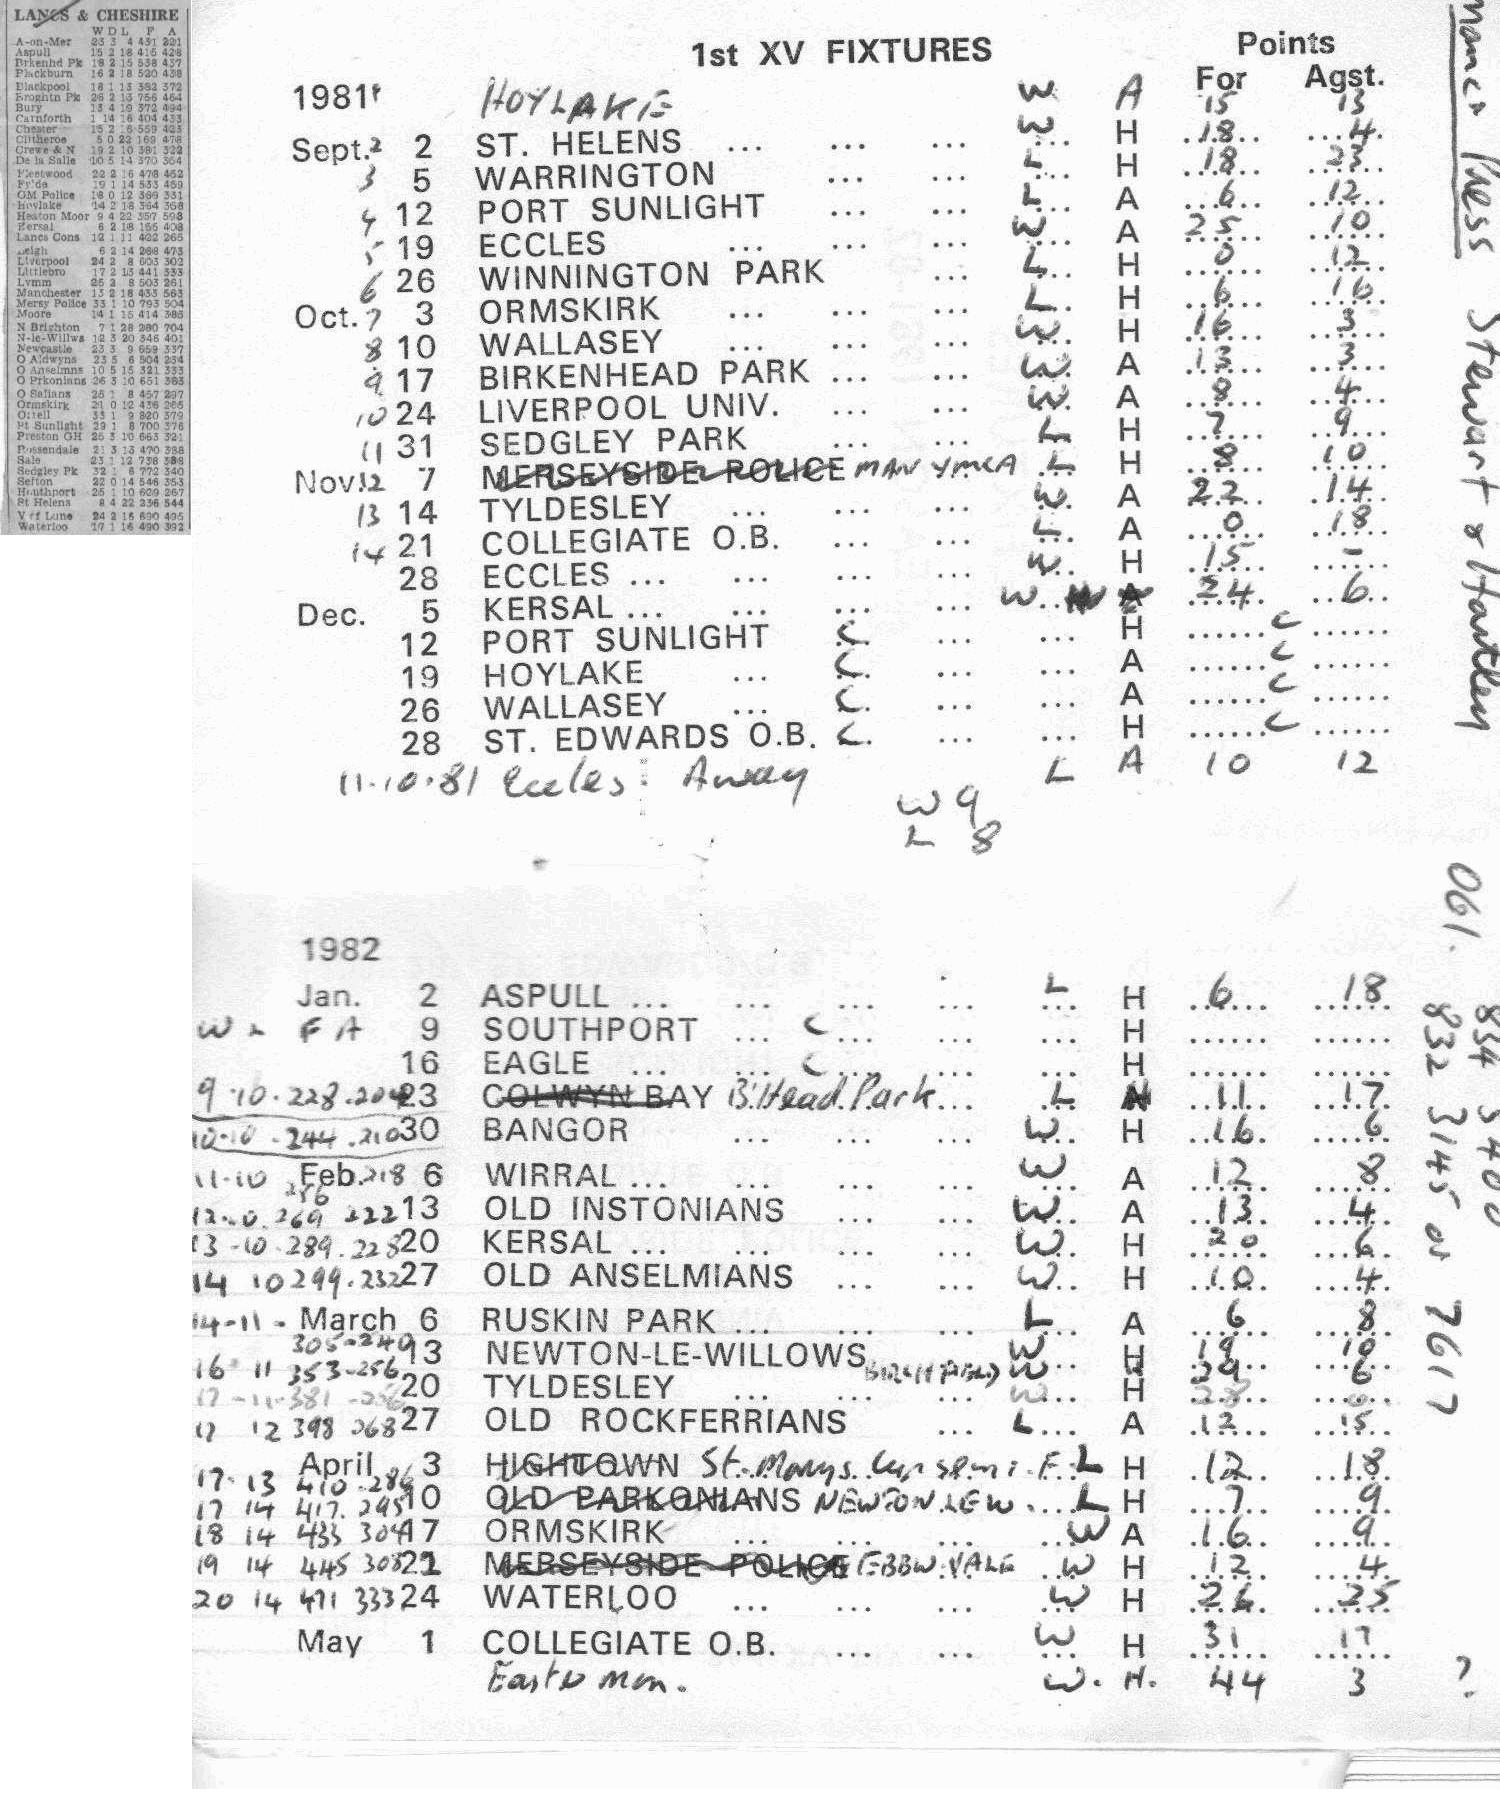 LANCS & CHESHIRE
W D L F A
A-on-Mer 23 3 4 431 221
Aspull 15 2 18 416 428
Birkenhd Pk 18 2 15 538 437
Blackburn 16 2 18 520 438
Blackpool 18 1 13 382 372
Broghtn Pk 26 2 13 756 464
Bury 13 4 19 372 494
Carnforth 1 14 16 404 433
Chester 15 2 16 559 423
Clitheroe 5 0 22 169 478
Crewe & N 19 2 10 381 322
De la Salle 10 5 14 370 364
Fleetwood 22 2 16 478 452
Fylde 19 1 14 533 459
GM Police 18 0 12 369 331
Hoylake 14 2 18 364 368
Heaton Moor 9 4 22 357 598
Kersal 6 2 18 155 408
Lancs Cons 12 1 11 402 265
Leigh 6 2 14 268 473
Liverpool 24 2 8 603 302
Littlebro 17 2 13 441 333
Lymm 25 2 8 503 261
Manchester 13 2 18 433 563
Mersy Police 33 1 10 793 504
Moore 14 1 15 414 385
N Brighton 7 1 28 280 704
N-le-Willws 12 3 20 346 401
Newcastle 23 3 9 659 337
O Aldwyns 23 5 6 504 234
O Anselmns 10 5 15 321 333
O Prkonians 26 3 10 651 383
O Salians 25 1 8 457 297
Ormskirk 21 0 12 436 265
Orrell 33 1 9 820 379
Pt Sunlight 29 1 8 700 376
Preston GH 25 3 10 663 321
Rossendale 21 3 13 470 388
Sale 23 1 12 738 388
Sedgley Pk 32 1 6 772 340
Sefton 22 0 14 546 353
Southport 25 1 10 609 267
St Helens 8 4 22 236 544
V of Lune 24 2 16 690 495
Waterloo 17 1 16 490 392
1st XV FIXTURES Points
For Agst.
1981 HOYLAKE W A 15 13
Sept. 2 2 ST. HELENS ... ... ... W H 18 4
3 5 WARRINGTON ... ... L H 18 23
4 12 PORT SUNLIGHT ... ... L A 6 12
5 19 ECCLES ... ... ... W A 25 10
6 26 WINNINGTON PARK ... L H 0 12
Oct. 7 3 ORMSKIRK ... ... ... L H 6 16
8 10 WALLASEY ... ... ... W H 16 3
9 17 BIRKENHEAD PARK ... ... W A 13 3
10 24 LIVERPOOL UNIV. ... ... W A 8 4
11 31 SEDGLEY PARK ... ... L H 7 9
Nov. 12 7 MERSEYSIDE POLICE MAN YMCA L H 8 10
13 14 TYLDESLEY ... ... ... W A 22 14
14 21 COLLEGIATE O.B. ... ... L A 0 18
28 ECCLES ... ... ... ... W H 15 -
Dec. 5 KERSAL ... ... ... ... W A 24 6
12 PORT SUNLIGHT C ... ... H C
19 HOYLAKE ... C ... ... A C
26 WALLASEY ... C ... ... A C
28 ST. EDWARDS O.B. C ... ... H C
11.10.81 Eccles: Away L A 10 12
W 9
L 8
1982
Jan. 2 ASPULL ... ... ... ... L H 6 18
W L F A 9 SOUTHPORT ... C ... ... ... H
16 EAGLE ... ... C ... ... ... H
9.10.228.204 23 COLWYN BAY B'Head Park ... L 11 17
10.10.244.210 30 BANGOR ... ... ... W H 16 6
11.10 Feb. 218 6 WIRRAL ... ... ... ... W A 12 8
256
12.10.269 222 13 OLD INSTONIANS ... ... W A 13 4
13-10.289.228 20 KERSAL ... ... ... ... W H 20 6
14 10 299.232 27 OLD ANSELMIANS ... ... W H 10 4
14-11 - March 6 RUSKIN PARK ... ... ... L A 6 8
305-240 13 NEWTON-LE-WILLOWS W H 19 10
16 11 353-256 BIRCHFIELD W 29 6
17-11-381-256 20 TYLDESLEY ... ... ... W H 28 0
17 12 398 268 27 OLD ROCKFERRIANS ... L A 12 15
April 3 HIGHTOWN St. Marys Cup Semi. F. L H 12 18
17.13 410.286
17 14 417.295 10 OLD PARKONIANS NEWTON LE W. L H 7 9
18 14 433 304 17 ORMSKIRK ... ... ... W A 16 9
19 14 445 308 21 MERSEYSIDE POLICE EBBW VALE W H 12 4
20 14 471 333 24 WATERLOO ... ... ... W H 26 25
May 1 COLLEGIATE O.B. ... ... W H 31 17
Easter Mon. W. H. 44 3 ?
Press Stewart & Hartley
061. 834 3400
832 3145 or 7617